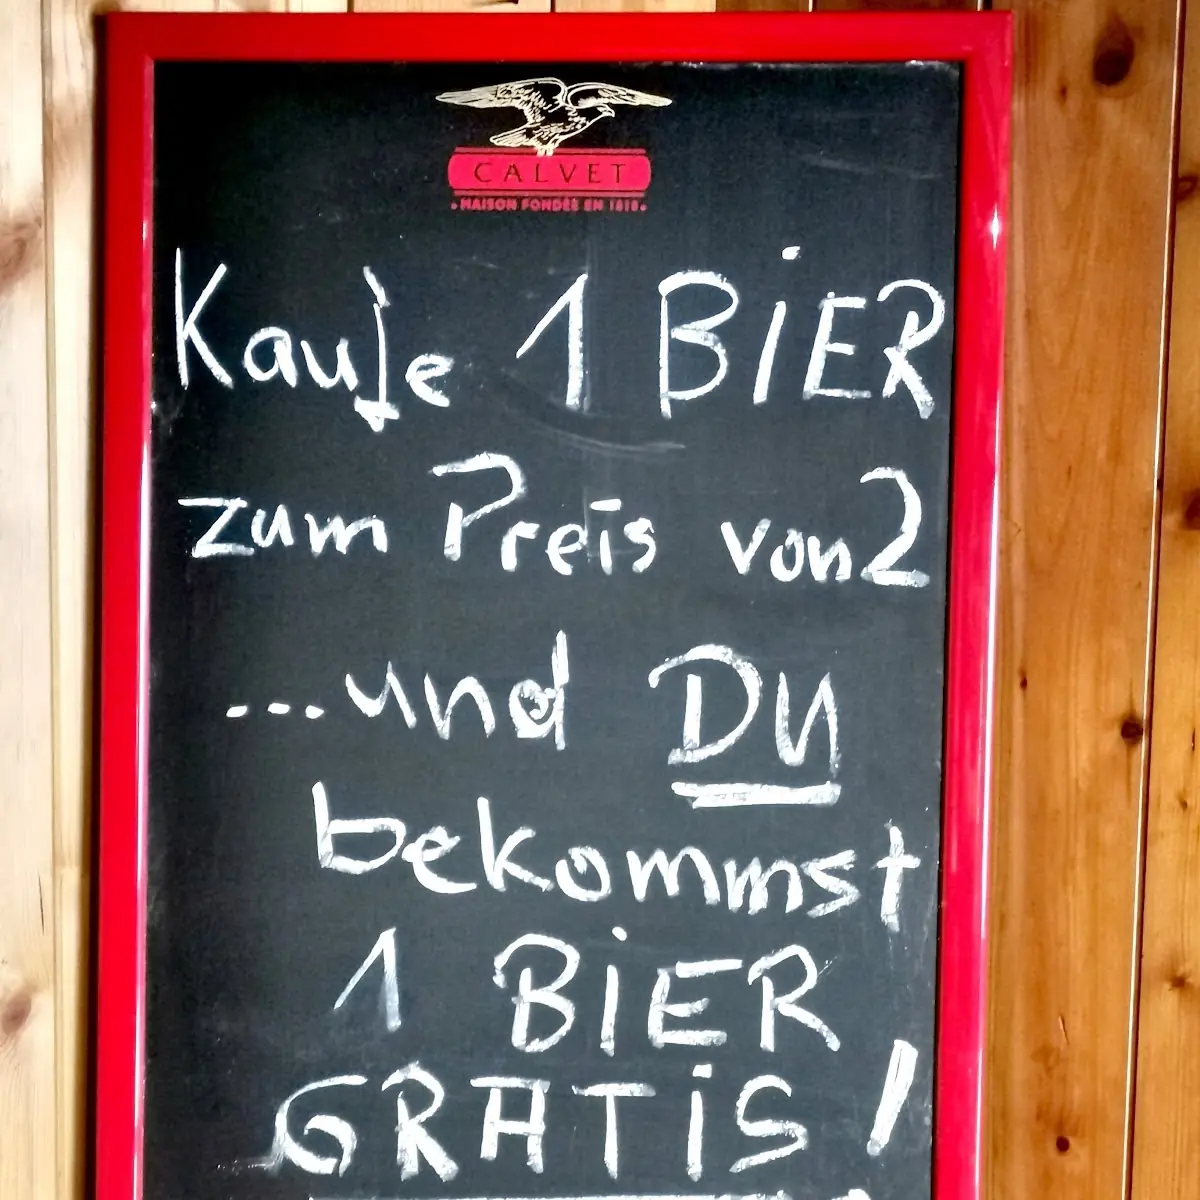 CALVET
• MAISON FONDÉE EN 1818 •
Kaufe 1 BiER
zum Preis von 2
...und DU
bekommst
1 BiER
GRATiS!